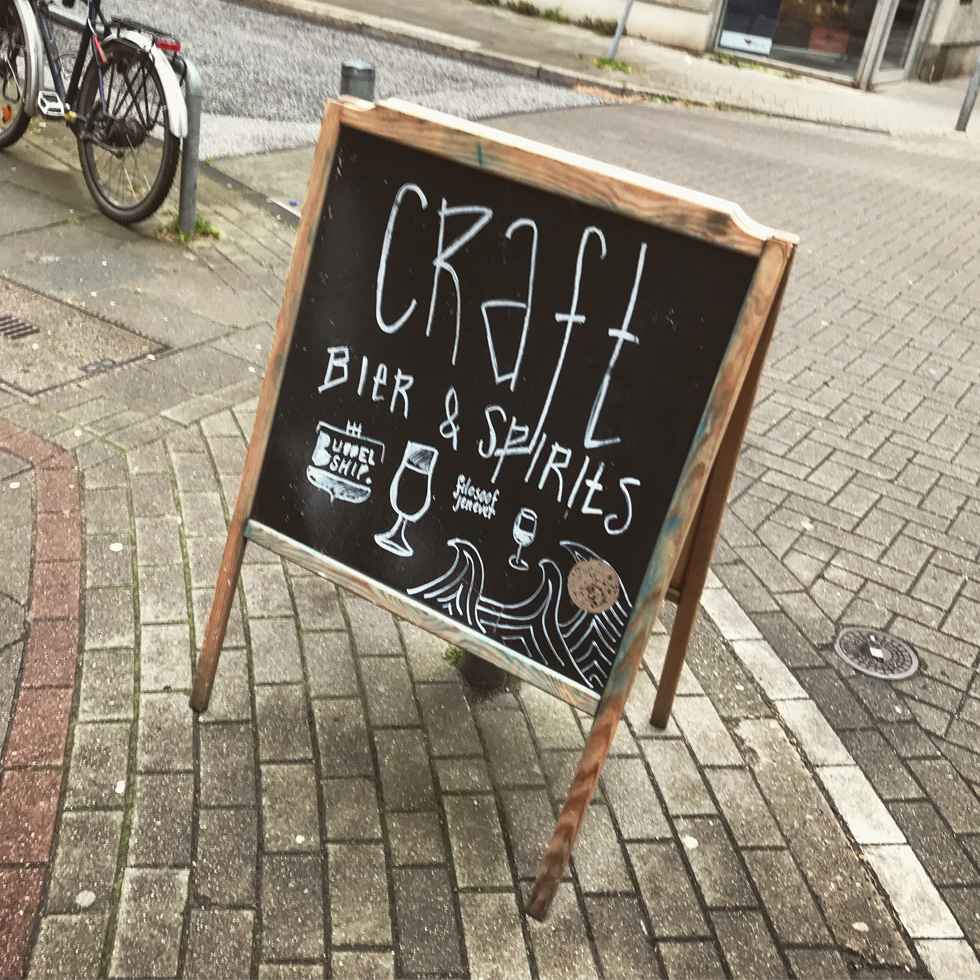 CRaft
BIER & SPIRItS
BUDDEL
SHIP.
filosoof
jenever